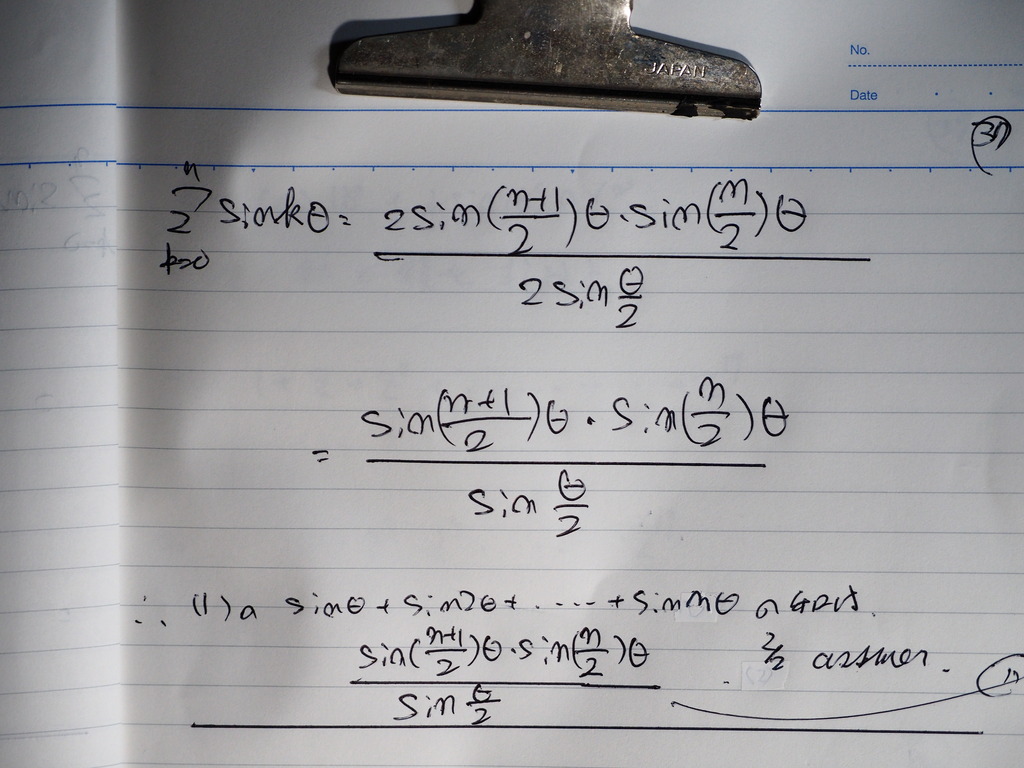 JAPAN
No.
Date
37
n
∑ sinkθ = 2sin((n+1)/2)θ・sin(n/2)θ / 2sin θ/2
k=0
= sin((n+1)/2)θ・sin(n/2)θ / sin θ/2
∴ (1)の sinθ + sin2θ + ・・・・ + sinnθ の
sin((n+1)/2)θ・sin(n/2)θ / sin θ/2 answer.